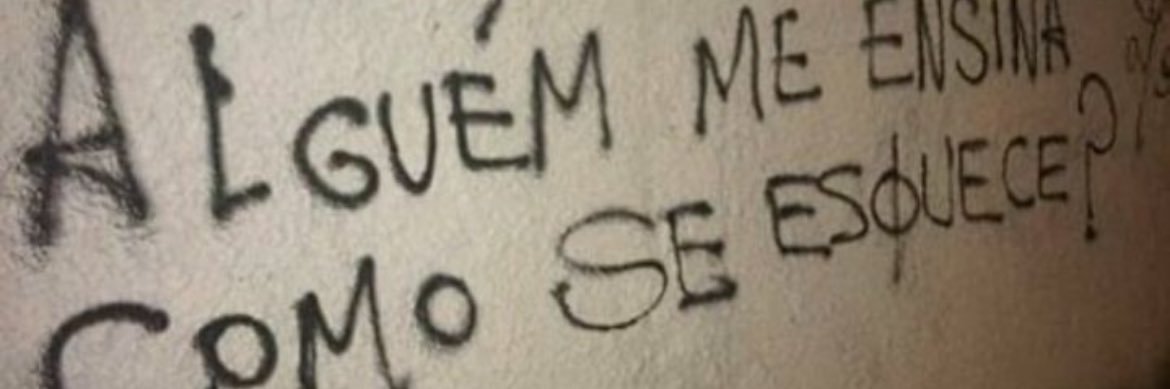 ALGUÉM ME ENSINA
COMO SE ESQUECE?